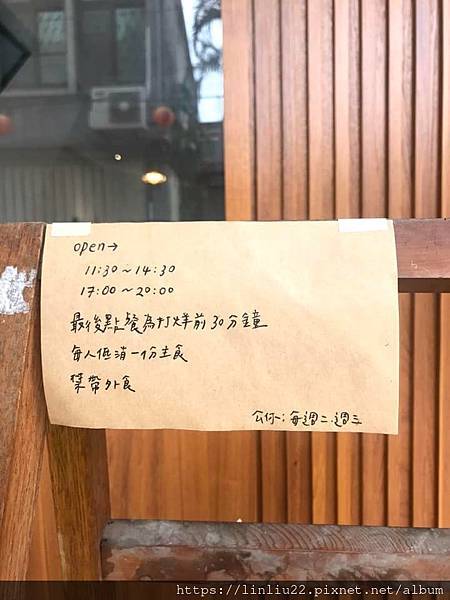 open→
11:30～14:30
17:00～20:00
最後點餐為打烊前30分鐘
每人低消一份主食
禁帶外食
公休：每週二.週三
https://linliu22.pixnet.net/album